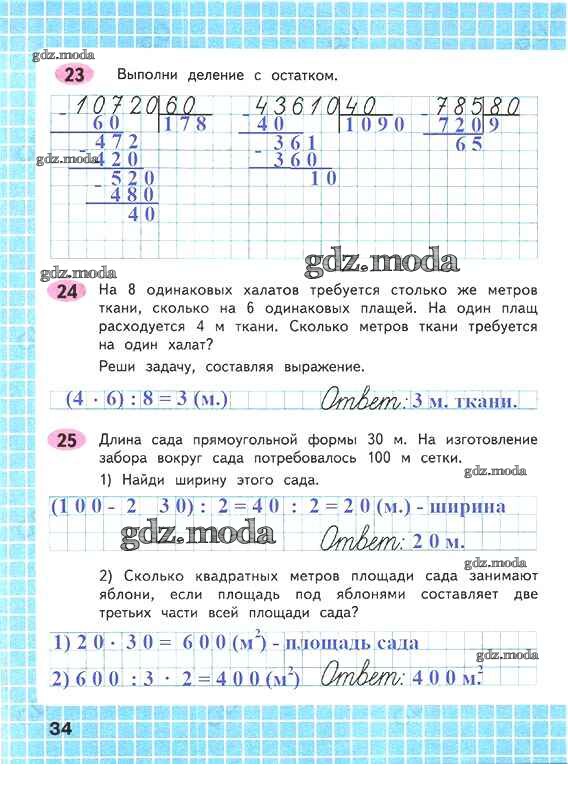 gdz.moda
23 Выполни деление с остатком.
10720 60 43610 40 785 80
60 178 40 1090 720 9
472 361 65
gdz.moda 420 360
520 10
480
40
gdz.moda
gdz.moda
24 На 8 одинаковых халатов требуется столько же метров
ткани, сколько на 6 одинаковых плащей. На один плащ
расходуется 4 м ткани. Сколько метров ткани требуется
на один халат?
Реши задачу, составляя выражение.
(4 · 6) : 8 = 3 (м.) Ответ: 3 м. ткани.
25 Длина сада прямоугольной формы 30 м. На изготовление
забора вокруг сада потребовалось 100 м сетки.
gdz.moda
1) Найди ширину этого сада.
(100 - 2 30) : 2 = 40 : 2 = 20 (м.) - ширина
gdz.moda Ответ: 20 м.
gdz.moda
2) Сколько квадратных метров площади сада занимают
яблони, если площадь под яблонями составляет две
третьих части всей площади сада?
1) 20 · 30 = 600 (м²) - площадь сада
gdz.moda
2) 600 : 3 · 2 = 400 (м²) Ответ: 400 м².
34